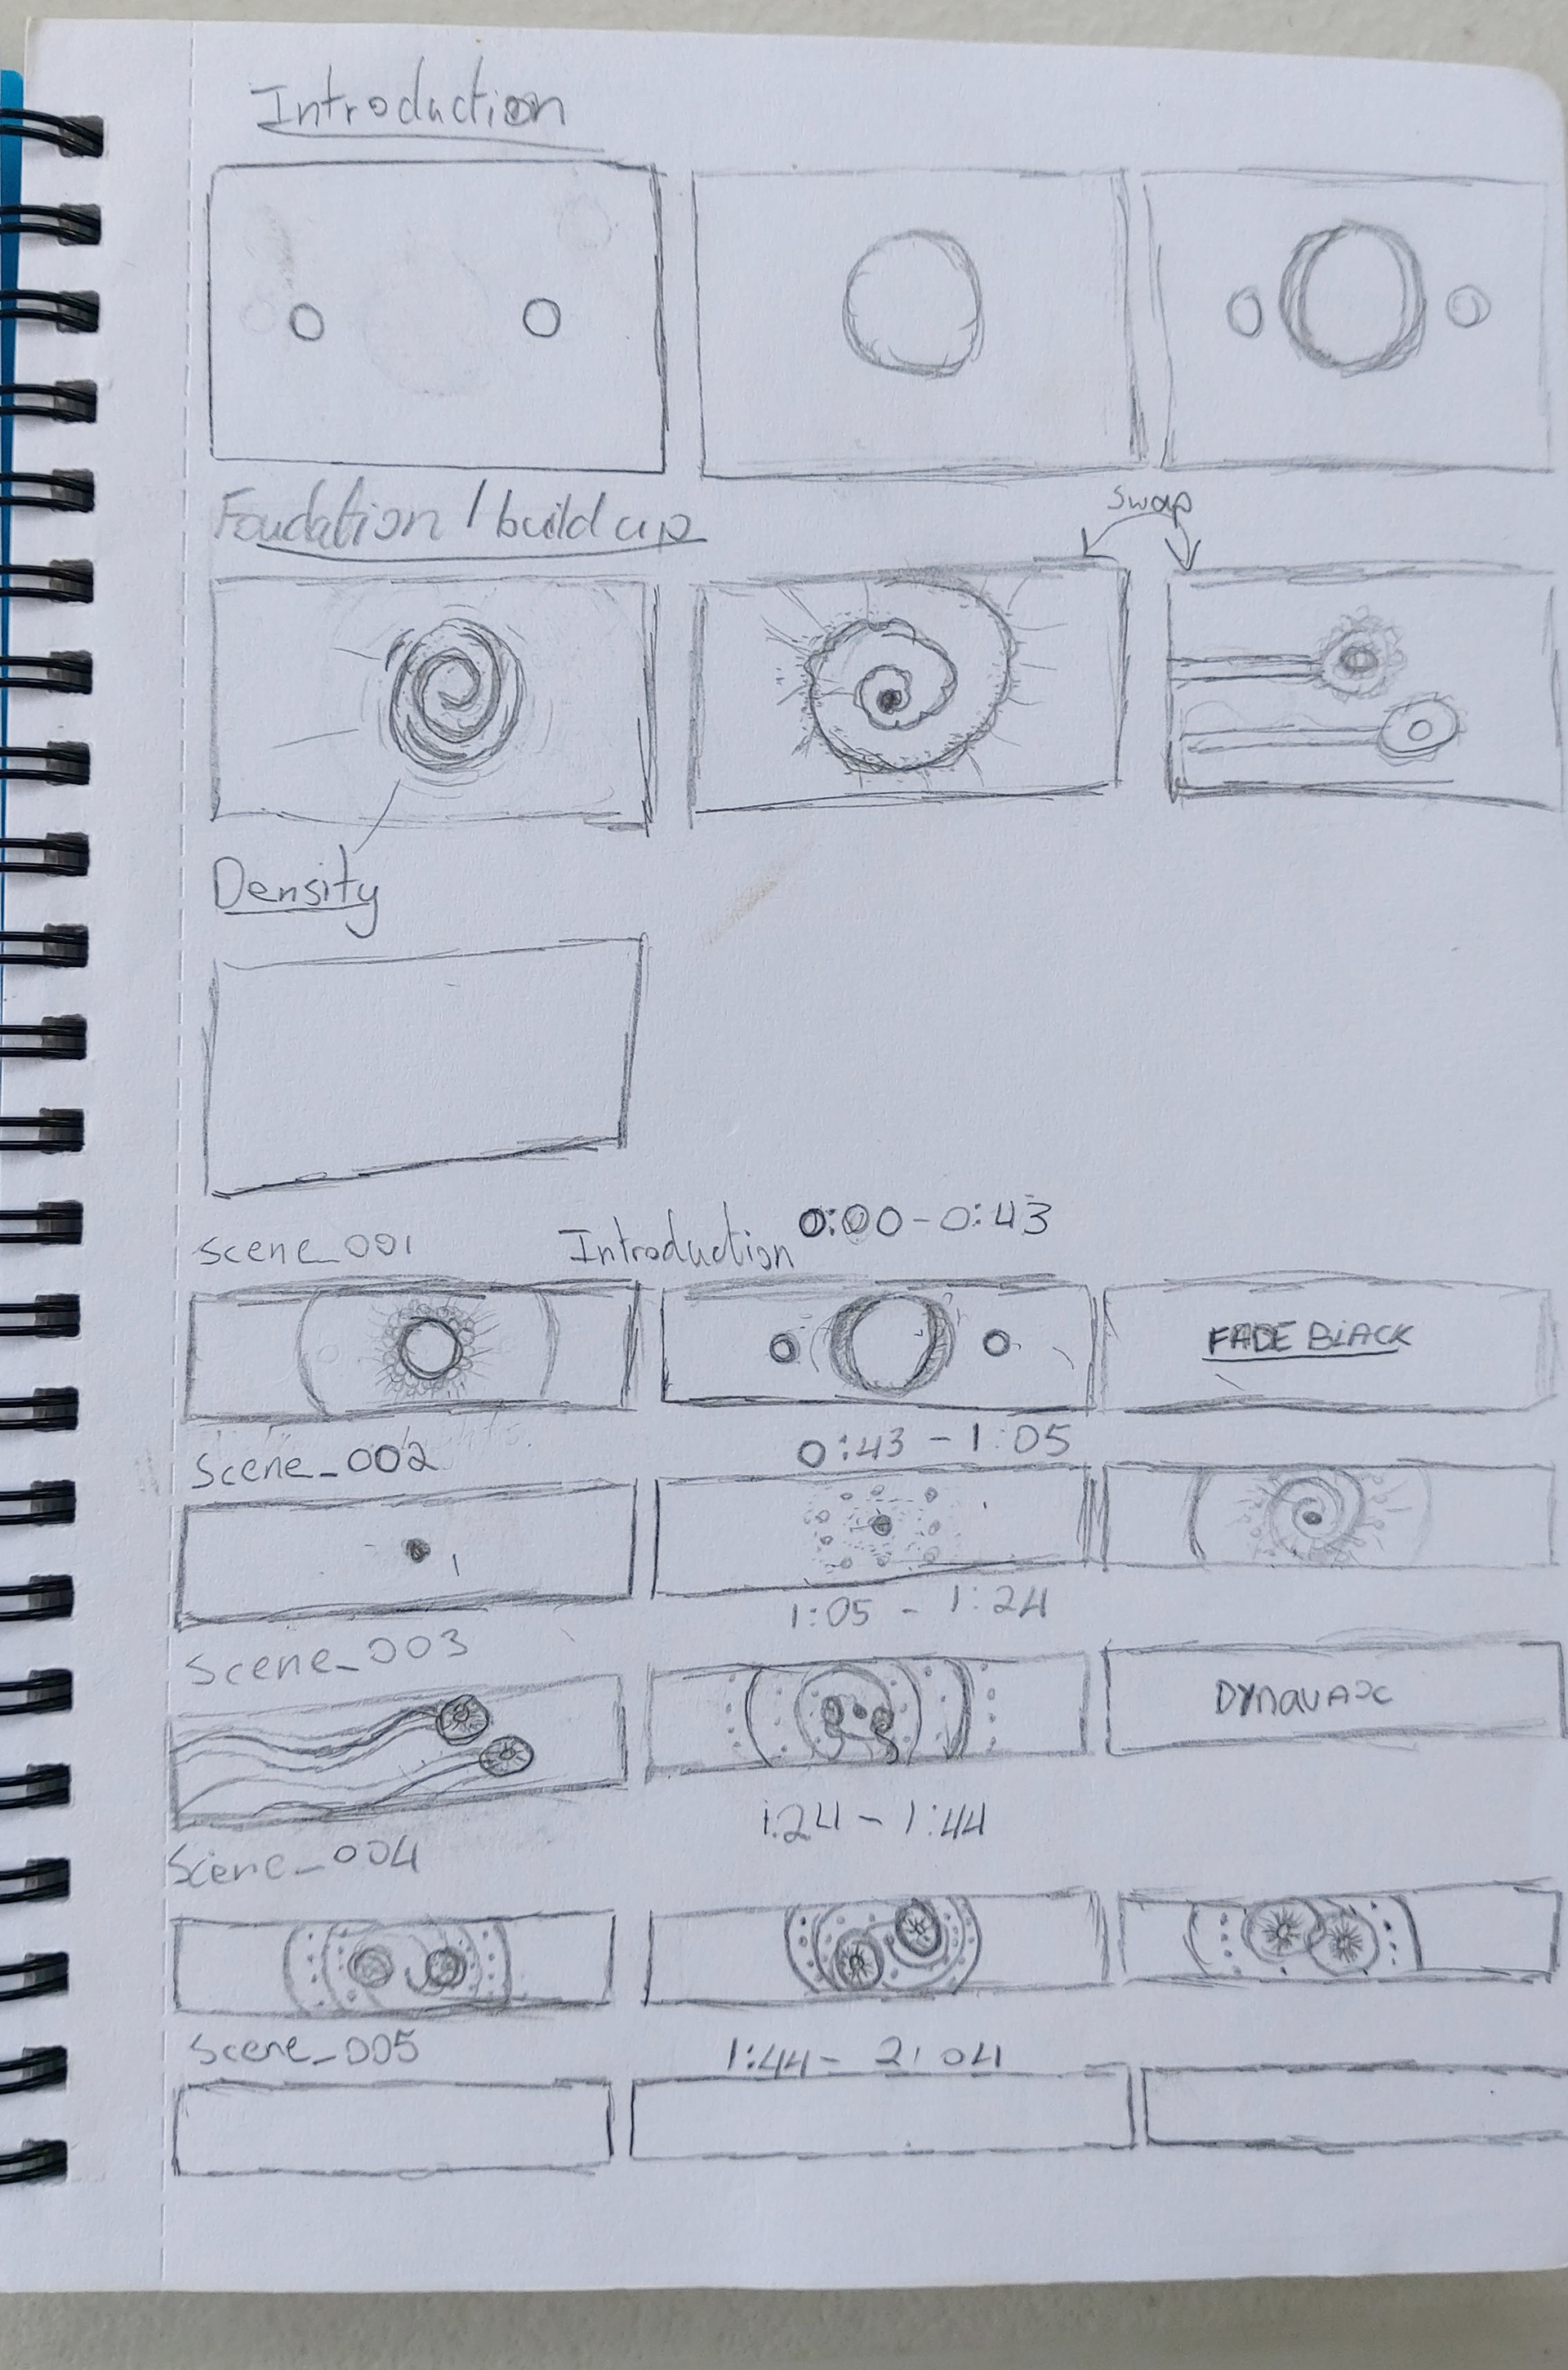 Introduction
Foudation / build up
swap
Density
Scene_001 Introduction 0:00-0:43
FADE BLACK
Scene_002 0:43 - 1:05
Scene_003 1:05 - 1:24
Scene_004 1:24 - 1:44
Scene_005 1:44 - 2:04